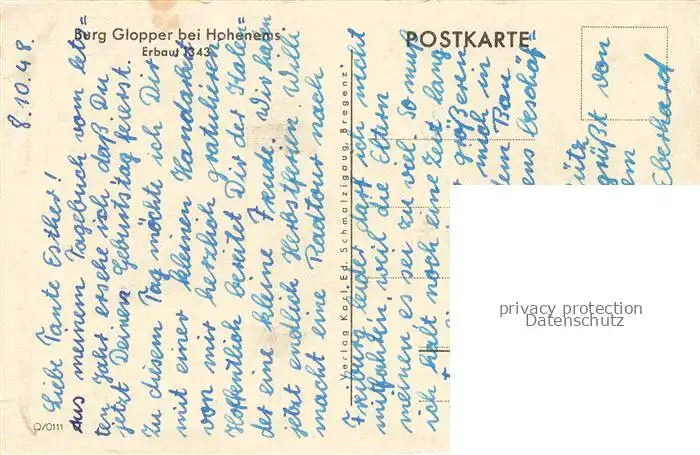 Burg Glopper bei Hohenems
Erbaut 1343
POSTKARTE
8.10.48.
Liebe Tante Esther!
Aus meinem Tagebuch vom letz=
ten Jahr ersehe ich daß Du
jetzt Deinen Geburtstag feierst.
Zu diesem Tag möchte ich Dir
mit einer kleinen Handarbeit
von mir herzlich gratulieren
Hoffentlich bereitet Dir der
der eine kleine Freude. Wir haben
jetzt endlich Herbstferien. Willi
macht eine Radtour nach
Freiburg leider darf ich nicht
mitfahren, weil die Eltern
meinen es sei zu viel. So muß
ich halt noch eine Zeit lang
größeren
mich in
dem Bau=
ens beschäf=
grüßt von
Eberhard
Verlag Karl Ed. Schmalzigaug, Bregenz
Q/0111
privacy protection
Datenschutz